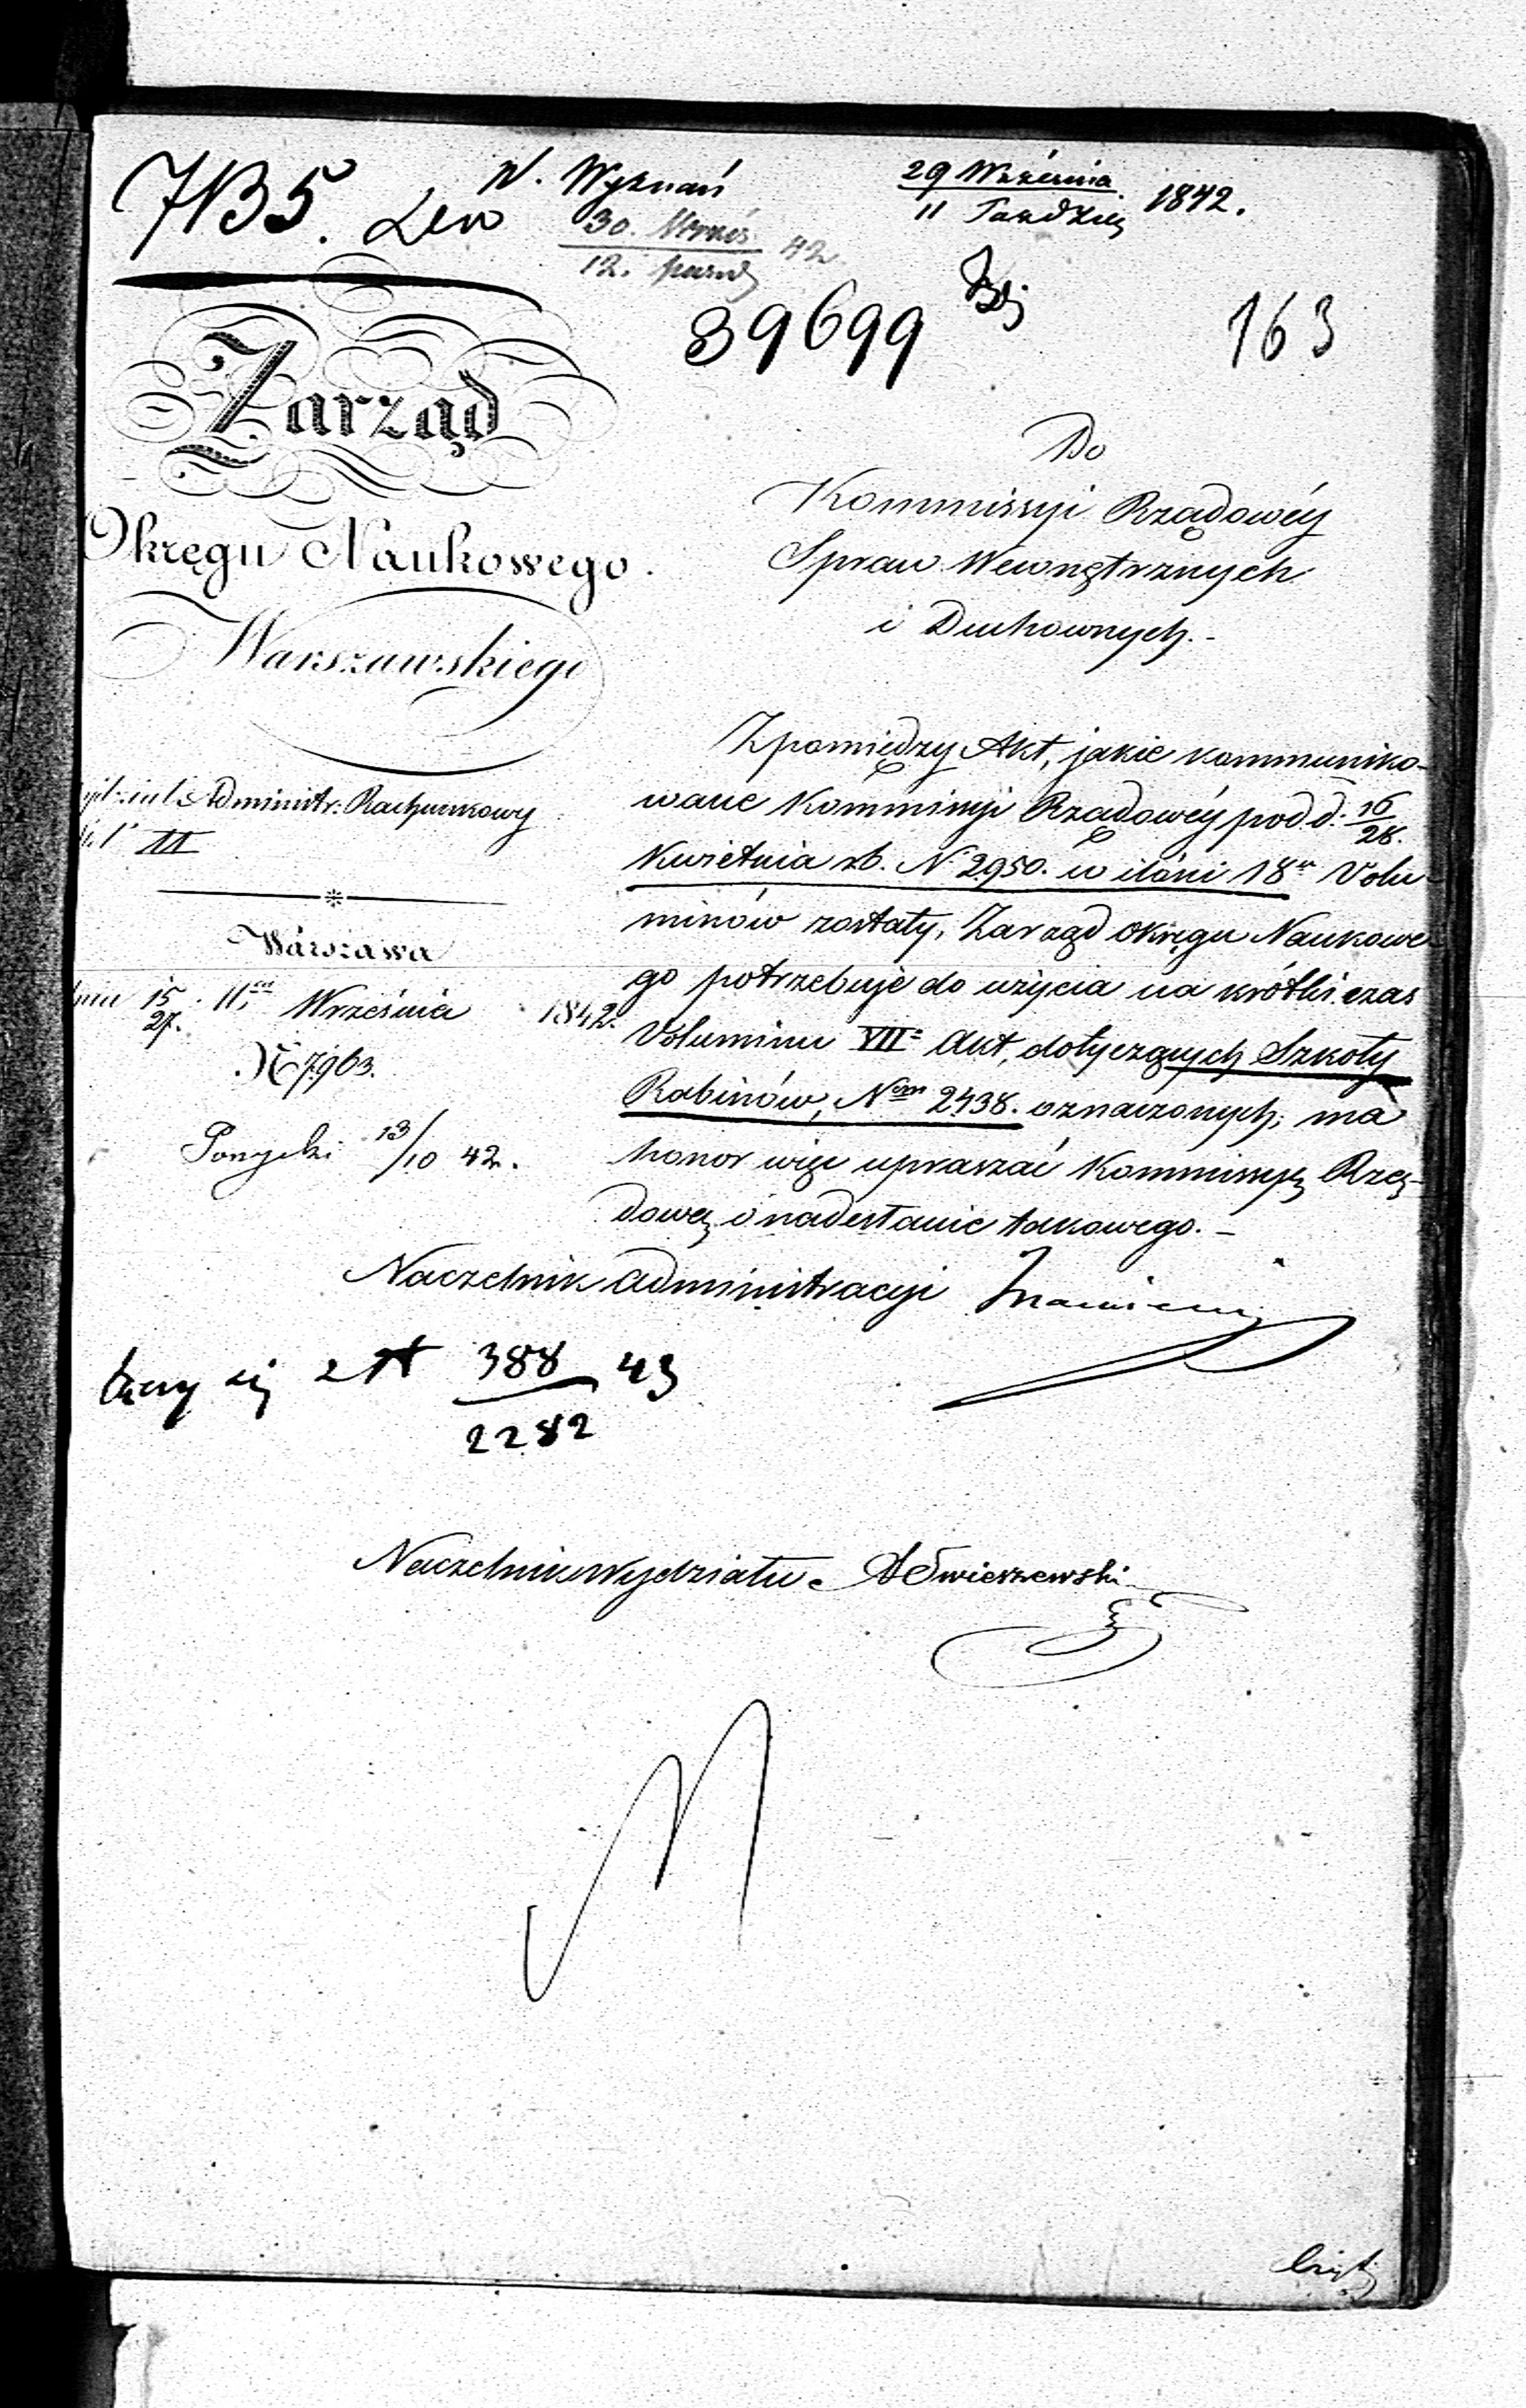 W. Wyznań
29 Września
11 Paździer 1842.
7135. Lew
30. Wrześ
12. paźd 42
39699
163
Zarząd
Okręgu Naukowego.
Warszawskiego
Administr: Rachunkowy
III
Warszawa
dnia 15/27. Września 1842.
N 7,963.
13/10 42.
Do
Kommissyi Rządowéy
Spraw Wewnętrznych
i Duchownych.-
Zpomiędzy Akt, jakie kommuniko-
wane Kommissyi Rządowéy pod d: 16/28.
Kwietnia rb. N. 2950. w ilości 18u Volu-
minów zostały, Zarząd Okręgu Naukowe-
go potrzebuje do użycia na krótki czas
Voluminu VII Akt, dotyczących Szkoły
Rabinów, Nem 2438. oznaczonych; ma
honor więc upraszać Kommissyą Rzą-
dową o nadesłanie takowego.-
Naczelnik Administracyi
łączy się z N 388/2282 43
Naczelnik Wydziału. Świerzewski